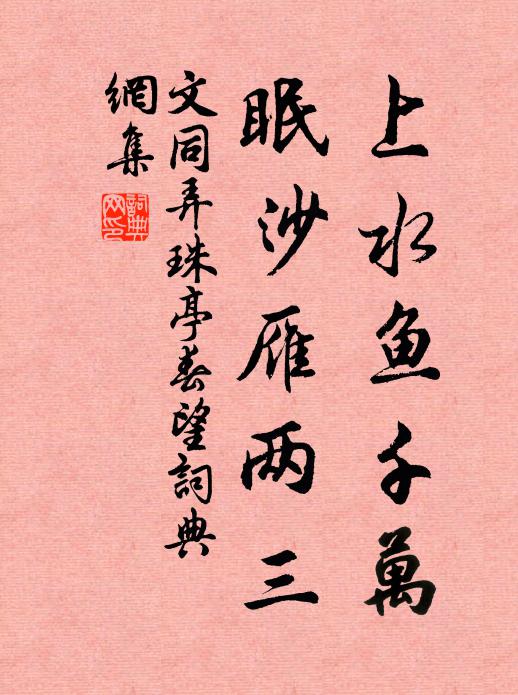 上水鱼千萬
眠沙雁两三
文同弄珠亭春望詞典
網集
詞典
网印